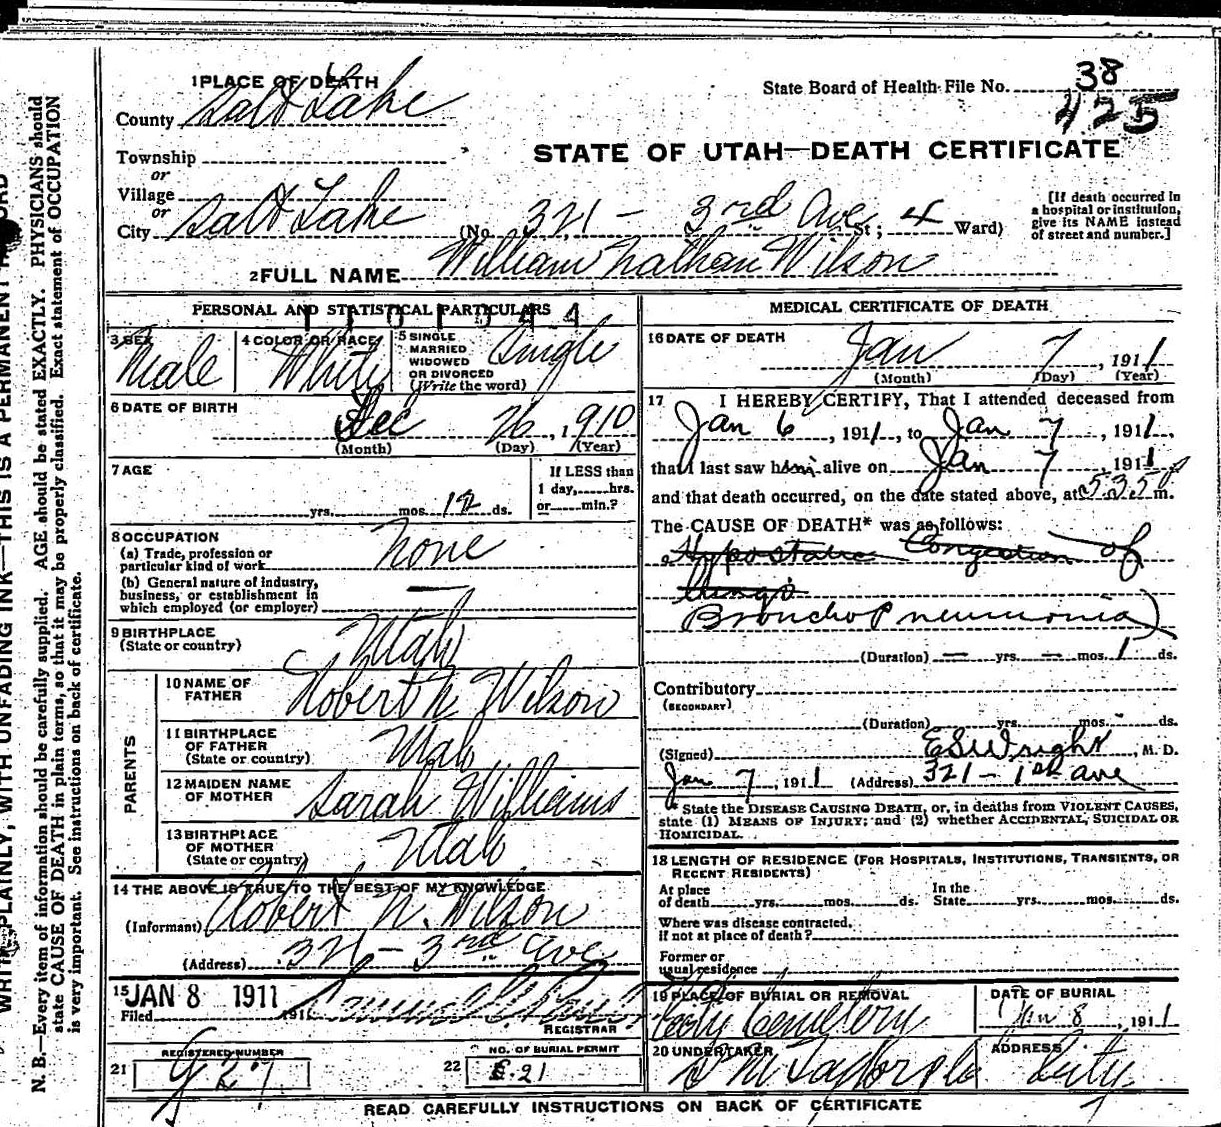 1 PLACE OF DEATH
State Board of Health File No. 38
425
County Salt Lake
STATE OF UTAH—DEATH CERTIFICATE
Township
or
Village
or
City Salt Lake (No. 321 - 3rd Ave St; 4 Ward)
[If death occurred in a hospital or institution, give its NAME instead of street and number.]
2 FULL NAME William Nathan Wilson
PERSONAL AND STATISTICAL PARTICULARS
3 SEX Male
4 COLOR OR RACE White
5 SINGLE MARRIED WIDOWED OR DIVORCED (Write the word) Single
6 DATE OF BIRTH Dec 26, 1910
(Month) (Day) (Year)
7 AGE
yrs. mos. 12 ds.
If LESS than 1 day, hrs. or min.?
8 OCCUPATION
(a) Trade, profession or particular kind of work None
(b) General nature of industry, business, or establishment in which employed (or employer) —
9 BIRTHPLACE
(State or country) Utah
PARENTS
10 NAME OF FATHER Robert N Wilson
11 BIRTHPLACE OF FATHER (State or country) Utah
12 MAIDEN NAME OF MOTHER Sarah Williams
13 BIRTHPLACE OF MOTHER (State or country) Utah
14 THE ABOVE IS TRUE TO THE BEST OF MY KNOWLEDGE
(Informant) Robert N. Wilson
(Address) 321 - 3rd Ave
15 JAN 8 1911
Filed 191
REGISTRAR
REGISTERED NUMBER
21 G 27
NO. OF BURIAL PERMIT
22 E.21
MEDICAL CERTIFICATE OF DEATH
16 DATE OF DEATH Jan 7, 1911
(Month) (Day) (Year)
17 I HEREBY CERTIFY, That I attended deceased from
Jan 6, 1911, to Jan 7, 1911,
that I last saw him alive on Jan 7, 1911
and that death occurred, on the date stated above, at m.
The CAUSE OF DEATH* was as follows:
Hypostatic Congestion of
lungs
Broncho Pneumonia)
(Duration) — yrs. — mos. 1 ds.
Contributory
(SECONDARY)
(Duration) yrs. mos. ds.
(Signed) E S Wright, M. D.
Jan 7, 1911 (Address) 321 - 1st ave
* State the DISEASE CAUSING DEATH, or, in deaths from VIOLENT CAUSES, state (1) MEANS OF INJURY; and (2) whether ACCIDENTAL, SUICIDAL OR HOMICIDAL.
18 LENGTH OF RESIDENCE (FOR HOSPITALS, INSTITUTIONS, TRANSIENTS, OR RECENT RESIDENTS)
At place of death yrs. mos. ds. In the State yrs. mos. ds.
Where was disease contracted, if not at place of death?
Former or usual residence
19 PLACE OF BURIAL OR REMOVAL
City Cemetery
DATE OF BURIAL
Jan 8, 1911
20 UNDERTAKER
S M Taylor
ADDRESS
City
READ CAREFULLY INSTRUCTIONS ON BACK OF CERTIFICATE
WRITE PLAINLY, WITH UNFADING INK—THIS IS A PERMANENT RECORD
N. B.—Every item of information should be carefully supplied. AGE should be stated EXACTLY. PHYSICIANS should
state CAUSE OF DEATH in plain terms, so that it may be properly classified. Exact statement of OCCUPATION
is very important. See instructions on back of certificate.